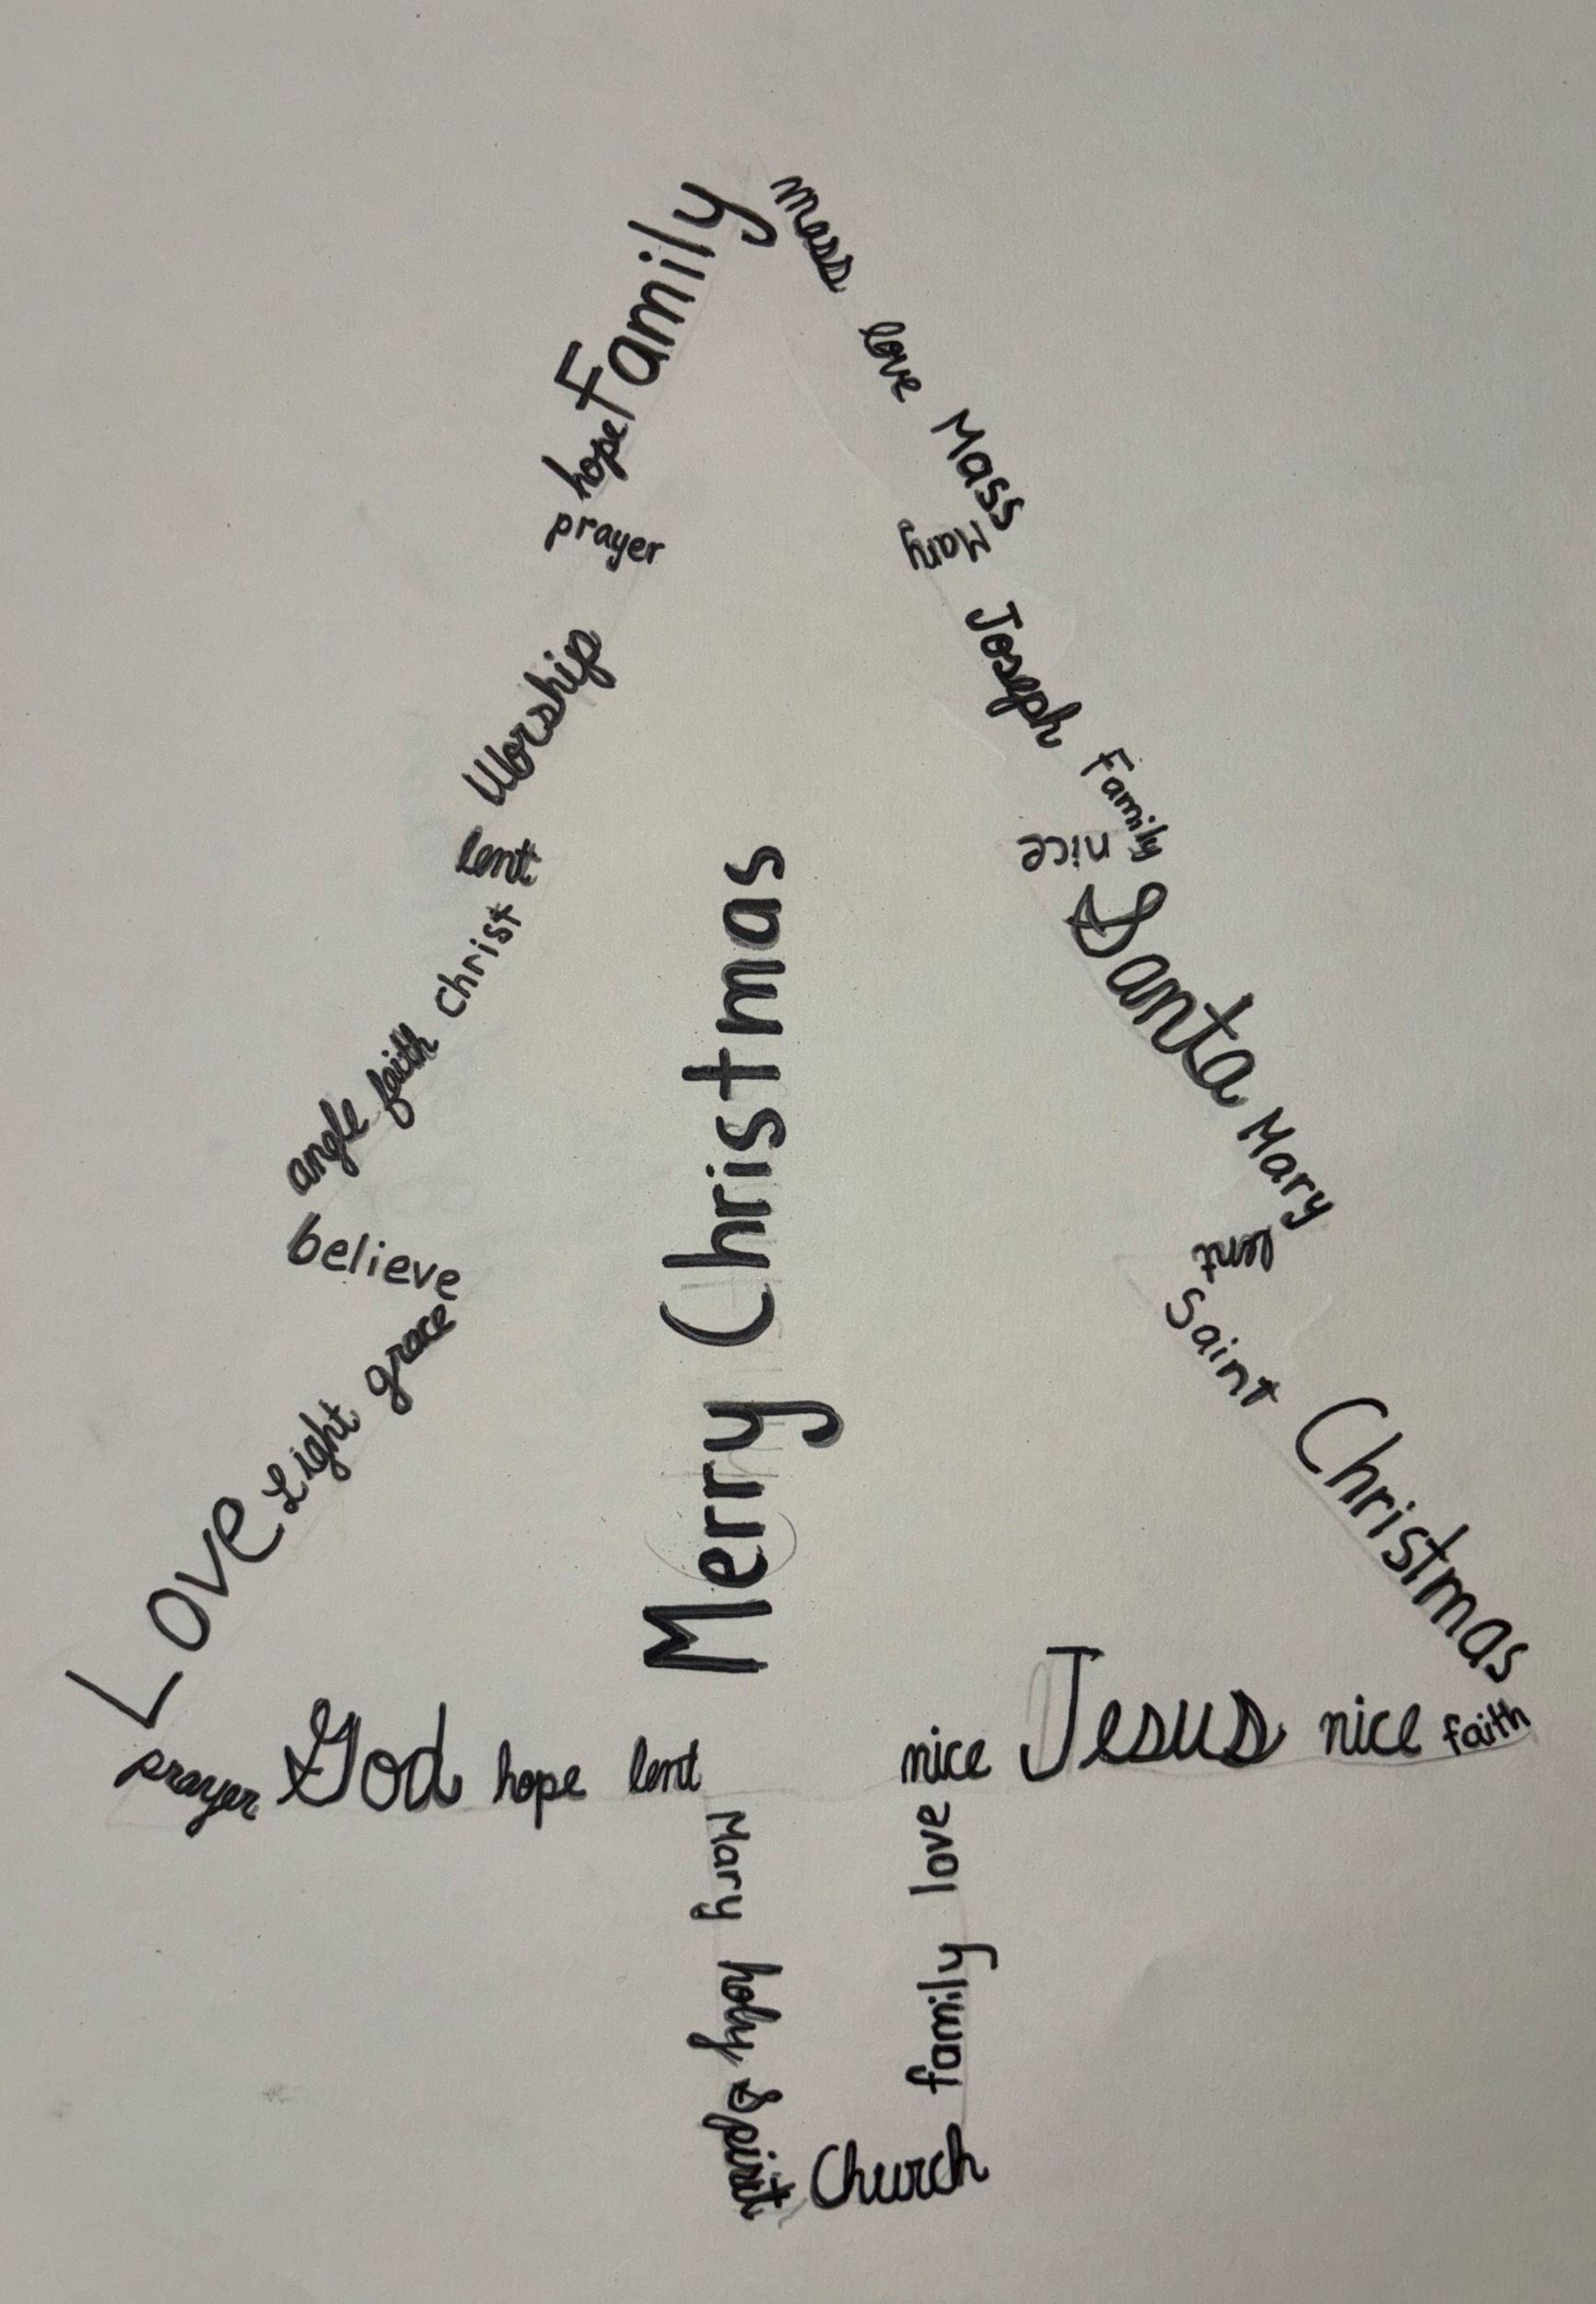 Family
hope
prayer
Worship
lent
Christ
faith
angle
believe
grace
Light
Love
mass
love
Mass
Mary
Joseph
Family
nice
Santa
Mary
lent
Saint
Christmas
Merry Christmas
prayer God hope lent
nice Jesus nice faith
Mary holy spirit
Church
family love